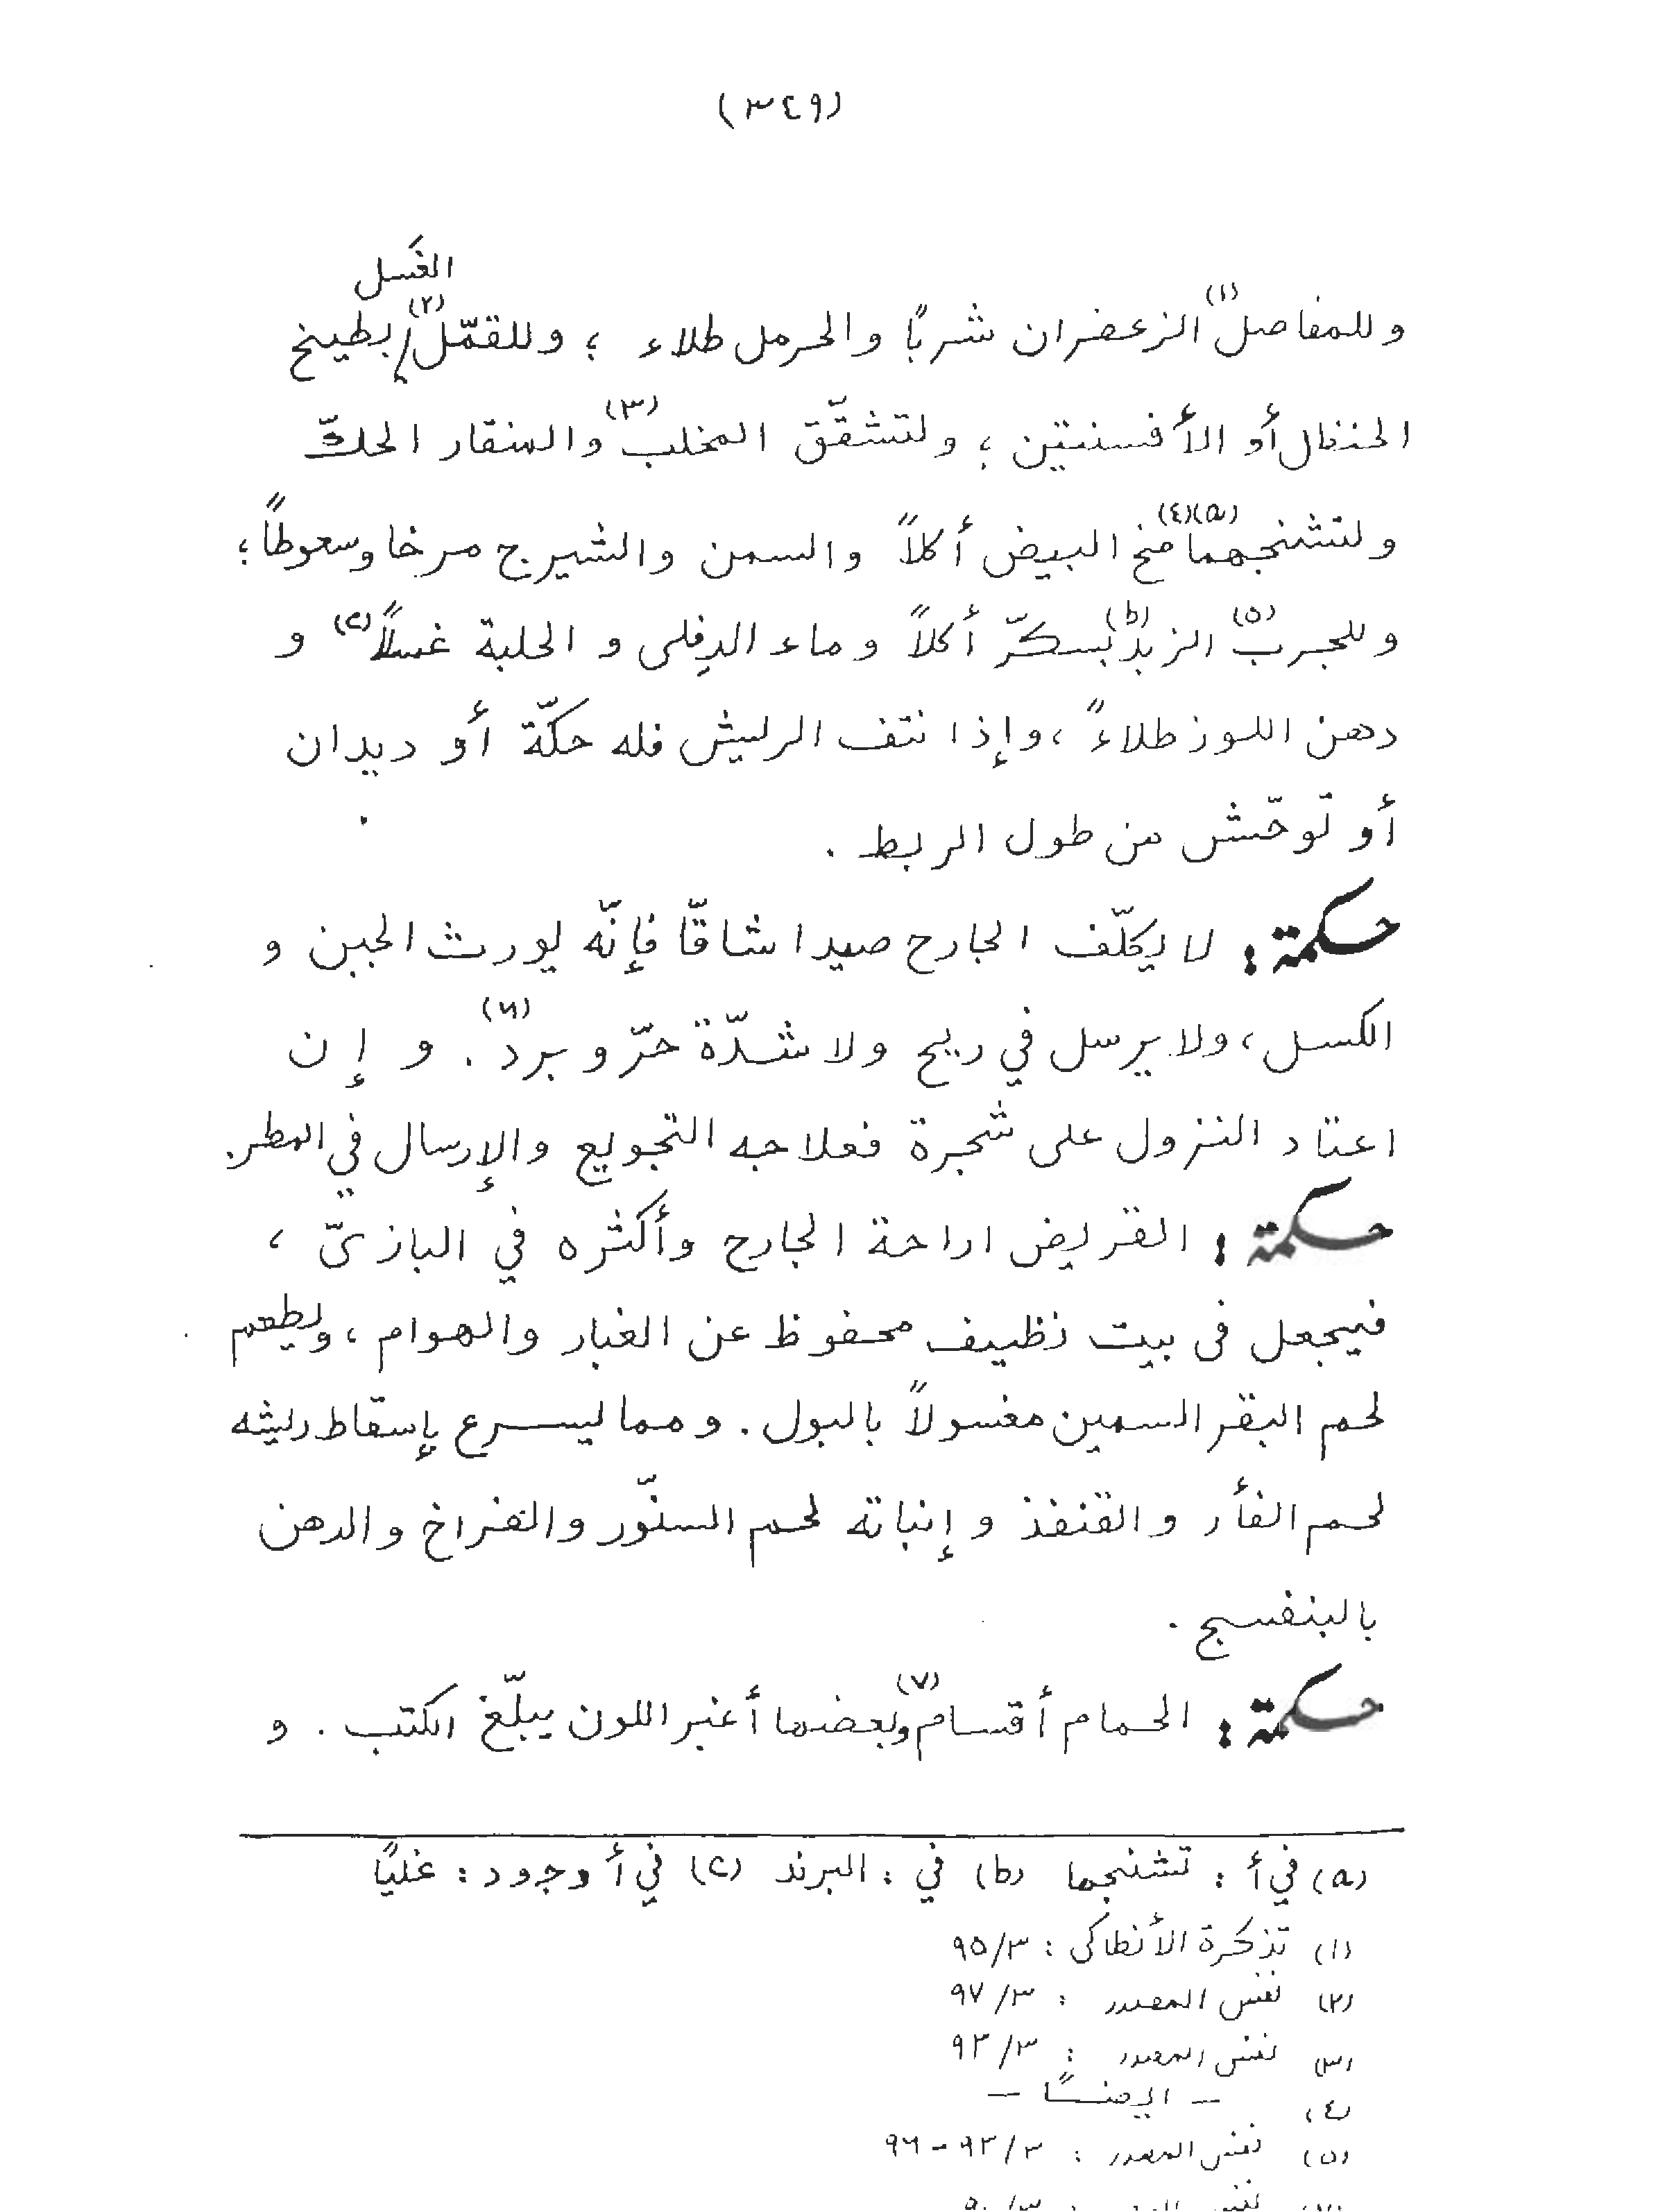 (٣٤٩)
الغَسل
وللمفاصل(١) الزعفران شربًا والحرمل طلاء ؛ وللقمّل(٢) / بطبيخ
الحنظل أو الأفسنتين ؛ ولتشقّق المخلب(٣) والمنقار الحكّ
ولتشنجهما(a)(٤) مخ البيض أكلاً والسمن والشيرج مرخا وسعوطاً ؛
وللجرب(٥) الزبد(b) بسكرّ أكلاً وماء الدِفلى و الحلبة غسلاً(c) و
دهن اللوز طلاءً ، وإذا نتف الريش فله حكّة أو ديدان
أو توحّش من طول الربط .
حكمة : لا يكلّف الجارح صيدا شاقّا فإنّه يورث الجبن و
الكسل ، ولا يرسل في ريح ولا شدّة حرّ و برد(٦) . و إن
اعتاد النزول على شجرة فعلاجه التجويع والإرسال في المطر .
حكمة : القريض اراحة الجارح وأكثره في البازىّ ،
فيجعل فى بيت نظيف محفوظ عن الغبار والهوام ، ويطعم
لحم البقر السمين مغسولاً بالبول . ومما يسرع بإسقاط ريشه
لحم الفأر والقنفذ و إنباته لحم السنّور والفراخ والدهن
بالبنفسج .
حكمة : الحمام أقسام(٧) وبعضها أغبر اللون يبلّغ الكتب . و
(a) في أ : تشنجها (b) في : البرند (c) في أ وجود : غليًا
(١) تذكرة الأنطاكى : ٩٥/٣
(٢) نفس المصدر : ٩٧/٣
(٣) نفس المصدر : ٩٣/٣
(٤) - ايضًا -
(٥) نفس المصدر : ٩٣/٣ - ٩٦